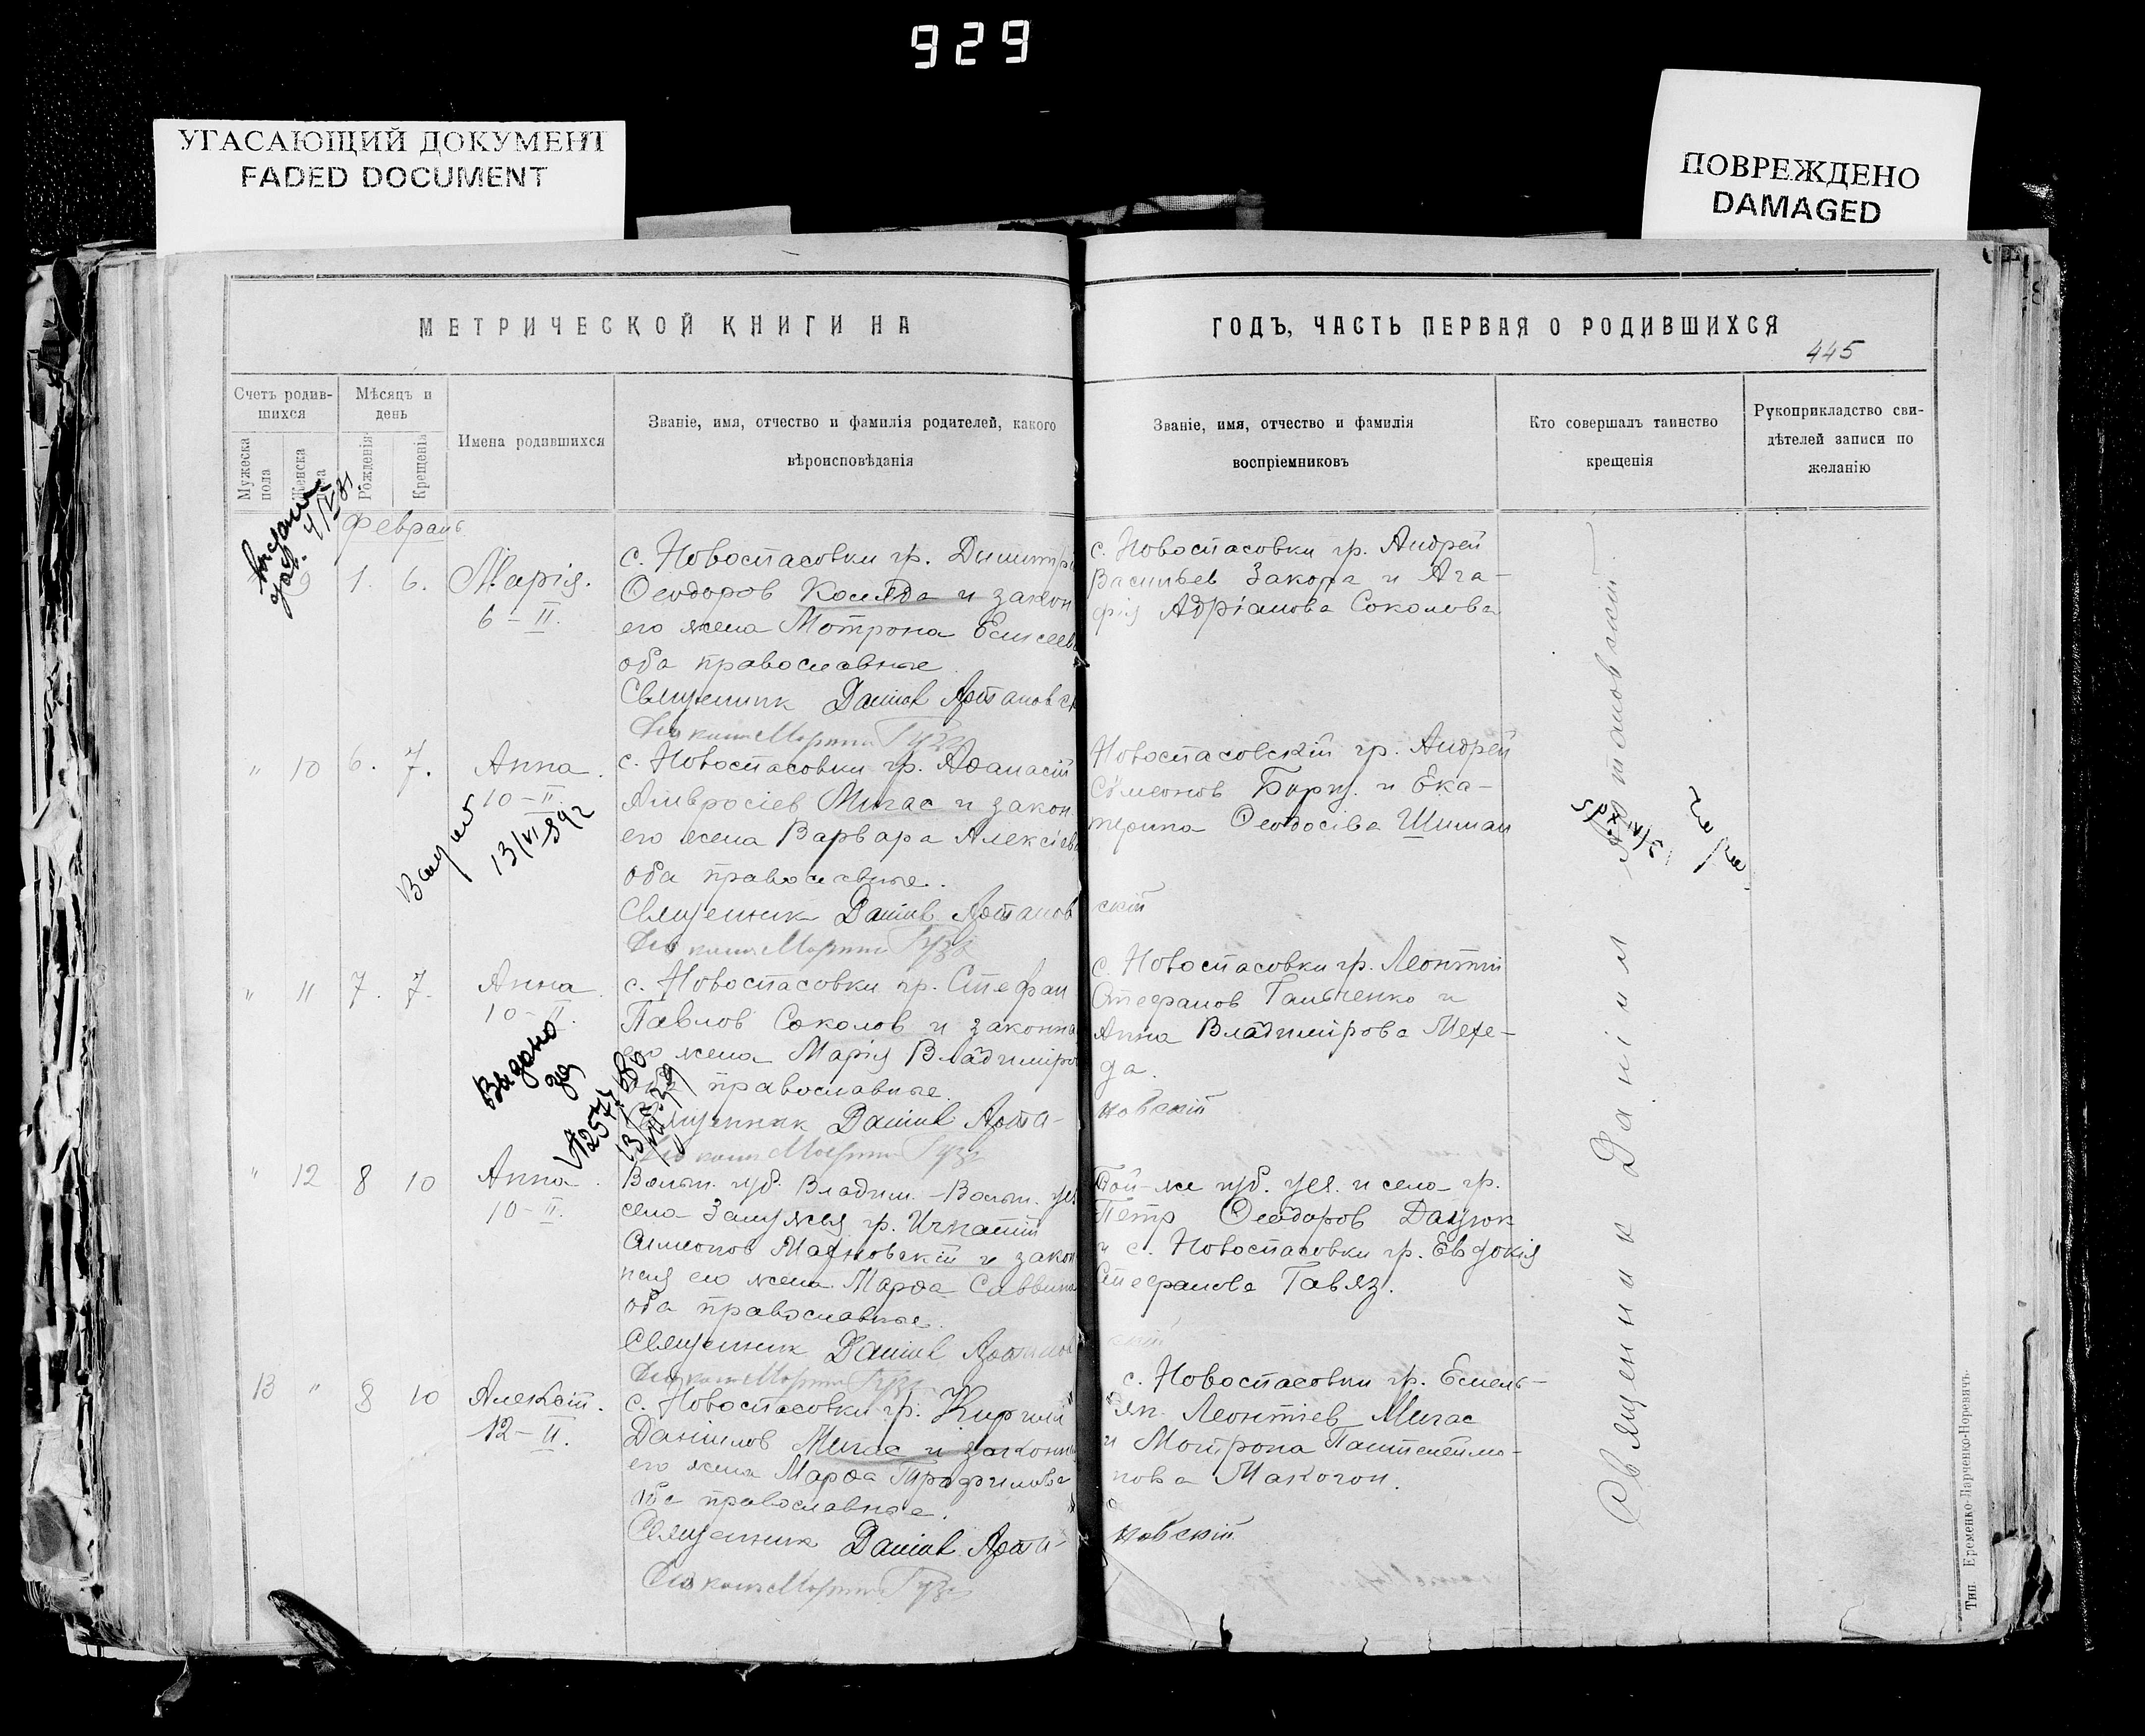 929
УГАСАЮЩИЙ ДОКУМЕНТ
FADED DOCUMENT
ПОВРЕЖДЕНО
DAMAGED
МЕТРИЧЕСКОЙ КНИГИ НА
ГОДЪ, ЧАСТЬ ПЕРВАЯ О РОДИВШИХСЯ
445
Счетъ родив-
шихся
Мѣсяцъ и
день
Мужеска
пола
Женска
Рожденія
Крещенія
Имена родившихся
Званіе, имя, отчество и фамилія родителей, какого
вѣроисповѣданія
Званіе, имя, отчество и фамилія
воспріемниковъ
Кто совершалъ таинство
крещенія
Рукоприкладство сви-
дѣтелей записи по
желанію
Февраль
9 1. 6. Марія.
6 – II.
с. Новоспасовки гр. Димитрі
Ѳеодоров Коляда и закон
его жена Мотрона Елисеева
оба православные
Священник Даніил Артановск
с. Новоспасовки гр. Андрей
Васильев Закора и Ага-
фія Адріанова Соколова
" 10 6. 7. Анна.
10 – II.
13/VI 892
с. Новоспасовки гр. Аѳанасій
Амвросіев Мигас и закон
его жена Варвара Алексіева
оба православные.
Священник Даніил Артанов
Новоспасовскій гр. Андрей
Сѵмеонов и Ека-
терина Ѳеодосіва Шиман
скій
" 11 7. 7. Анна.
10 – II.
Выдано
с. Новоспасовки гр. Стефан
Павлов Соколов и законна
его жена Марія Владиміро
оба православные.
Священник Даніил Арта-
с. Новоспасовки гр. Леонтій
Стефанов Гальченко и
Анна Владимірова Мере-
да.
новскій
" 12 8 10 Анна.
10 – II.
Волын. губ. Владим.-Волын. уез
села Залужья гр. Игнатій
Симеонов Махновскій и закон
ная его жена Марѳа Саввина
оба православные.
Священник Даніил Артанов
Той-же губ. уез. и села гр.
Петр Ѳеодоров Дацюк
и с. Новоспасовки гр. Евдокія
Стефанова Гавяз.
скій
13 " 8 10 Алексій.
12 – II.
с. Новоспасовки гр. Кирилл
Даніилов Мигас и законна
его жена Марѳа Трофимова
оба православные.
Священник Даніил Арта-
с. Новоспасовки гр. Емель-
ян Леонтіев Мигас
и Мотрона Пантелеймо-
нова Макогон.
новскій
Священник Даніил Артановскій
Тип. Еременко-Парченко-Норевичъ.